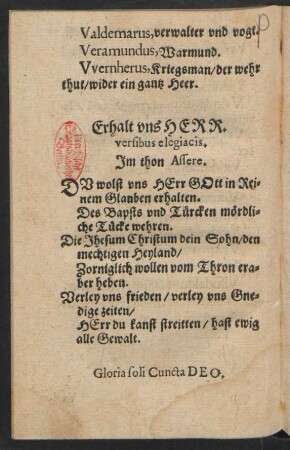 Valdemarus, verwalter vnd vogt.
Veramundus, Warmund.
Vvernherus, Kriegsman/ der wehr
thut/ wider ein gantz Heer.
Erhalt vns HERR.
versibus elegiacis.
Im thon Assere.
DV wolst vns HErr GOtt in Rei-
nem Glauben erhalten.
Des Bapsts vnd Türcken mördli-
che Tücke wehren.
Die Jhesum Christum dein Sohn/ den
mechtigen Heyland/
Zorniglich wollen vom Thron era-
ber heben.
Verley vns frieden/ verley vns Gne-
dige zeiten/
HErr du kanst streitten/ hast ewig
alle Gewalt.
Gloria soli Cuncta DEO.